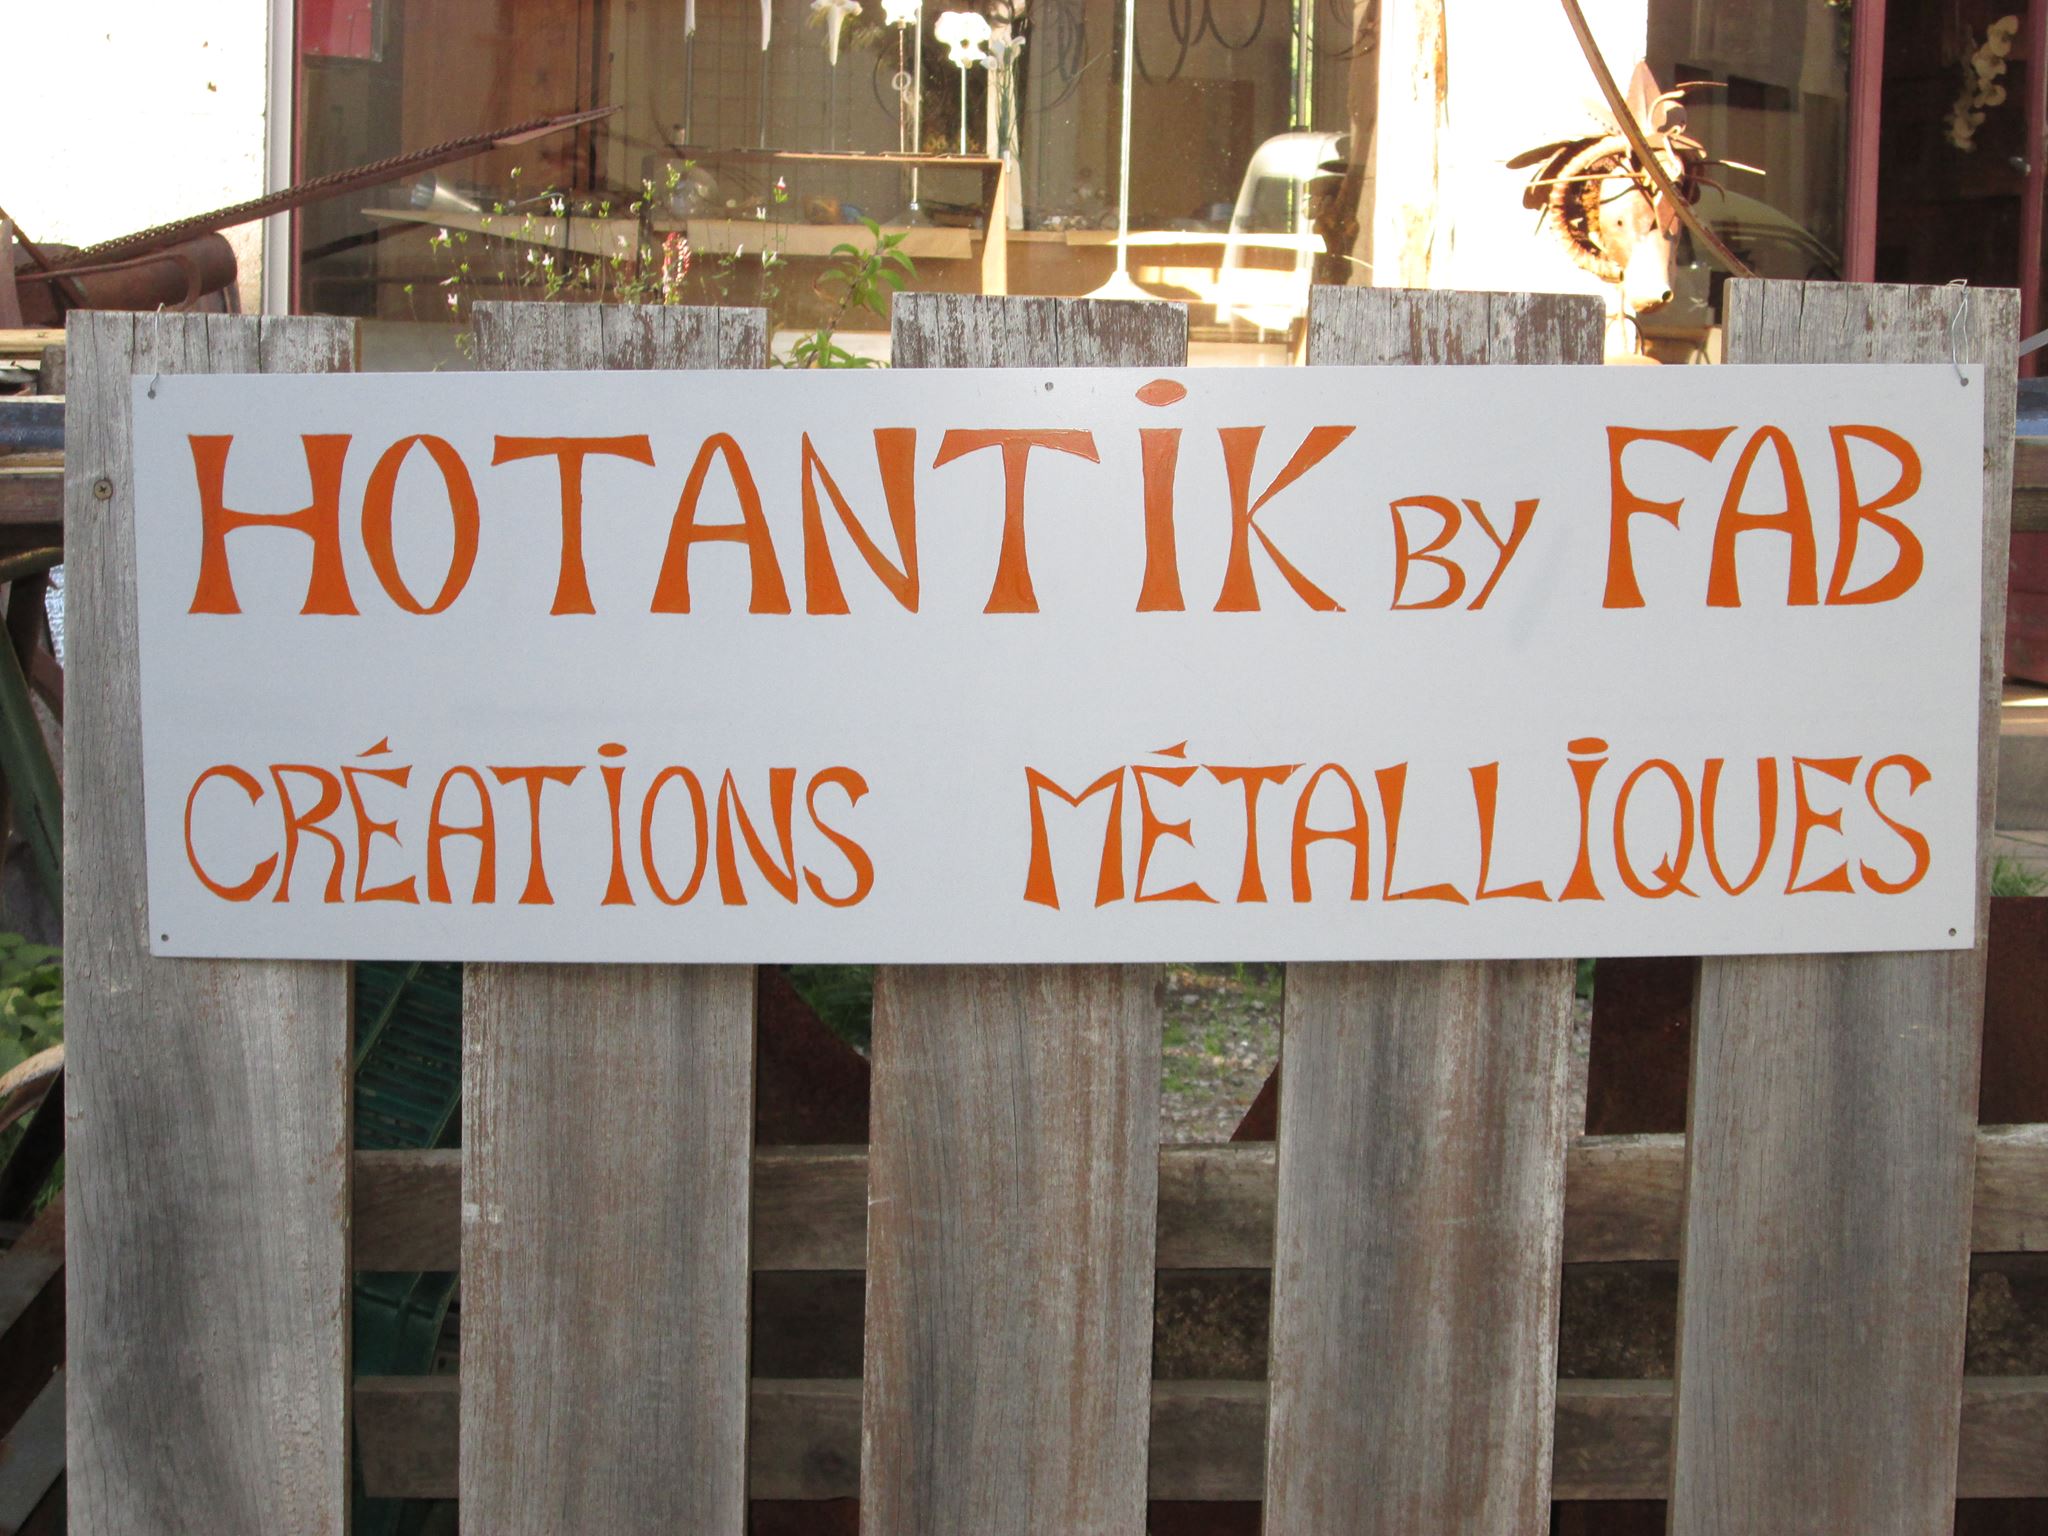 HOTANTiK BY FAB
CRÉATiONS MÉTALLiQUES